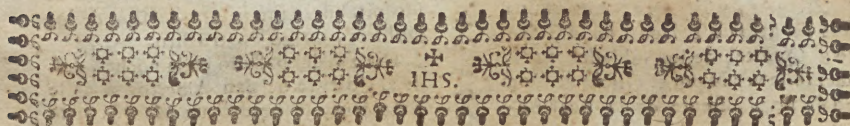 ✠
IHS.